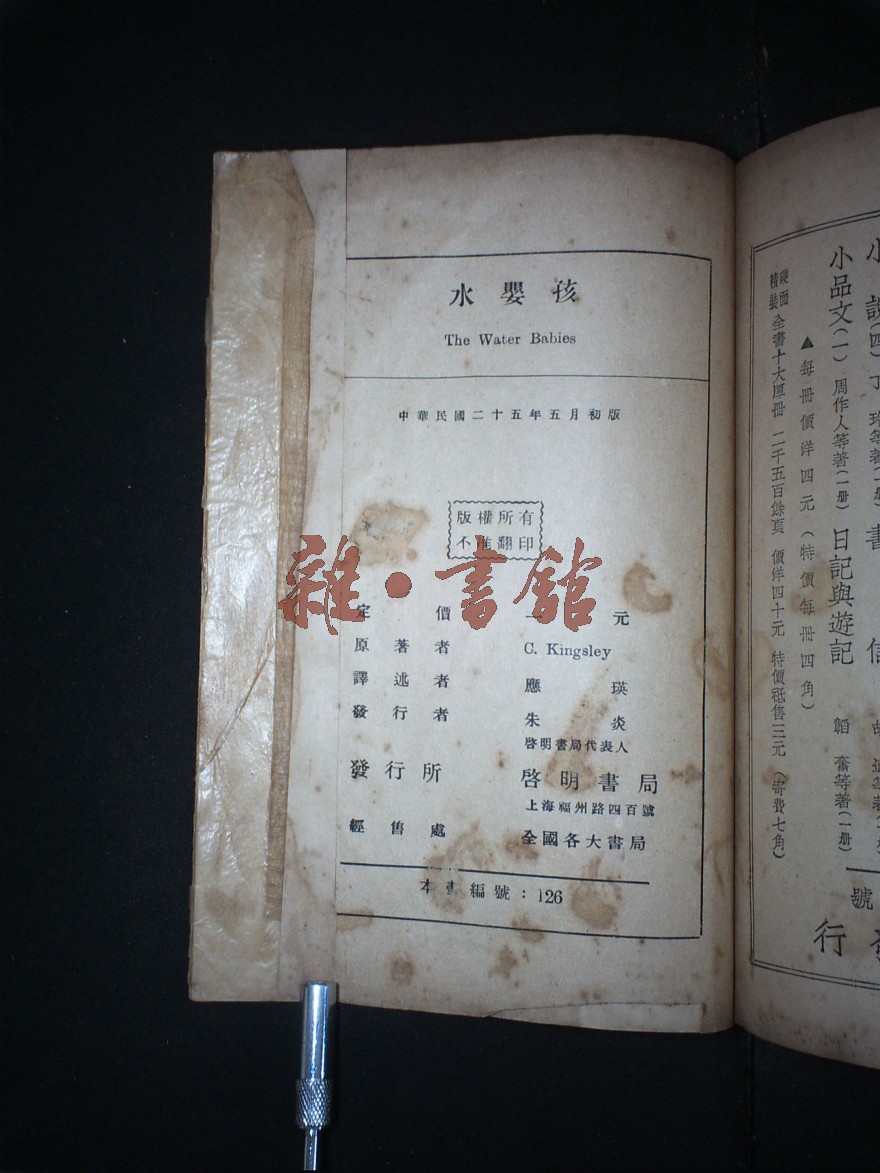 水嬰孩
The Water Babies
中華民國二十五年五月初版
版權所有
不准翻印
雜·書館
定價 元
原著者 C. Kingsley
譯述者 應瑛
發行者 朱炎
啓明書局代表人
發行所 啓明書局
上海福州路四百號
經售處 全國各大書局
本書編號：126
小說(四) 丁玲等著(一册) 書信
小品文(一) 周作人等著(一册) 日記與遊記 韜奮等著(一册)
▲每冊價洋四元(特價每冊四角)
硬面精裝 全書十大厚冊 二千五百餘頁 價洋四十元 特價祗售三元 (寄費七角)
號
行